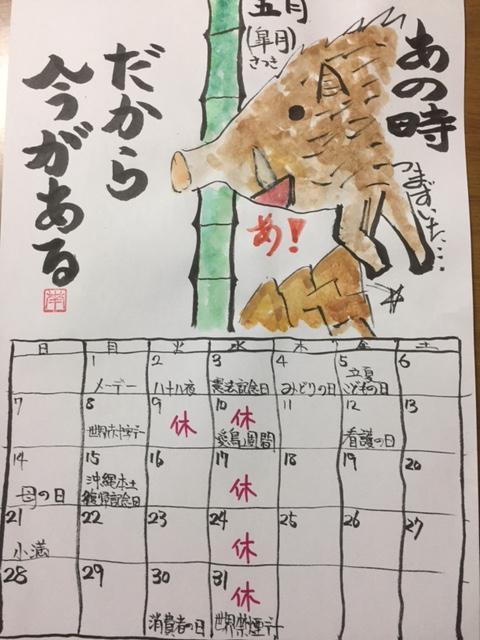 五月
(皐月)
さつき
あの時
つまずいた…
だから
今がある
あ!
日 月 火 水 木 金 土
1 2 3 4 5 6
メーデー 八十八夜 憲法記念日 みどりの日 立夏 こどもの日
7 8 9 10 11 12 13
世界赤十字デー 休 休 愛鳥週間 看護の日
14 15 16 17 18 19 20
母の日 沖縄本土復帰記念日 休
21 22 23 24 25 26 27
小満 休
28 29 30 31
消費者の日 休 世界禁煙デー